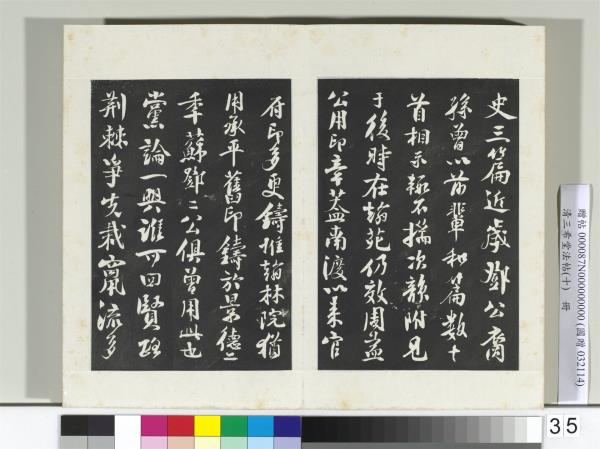 史三篇近歲鄧公裔
孫曾以前輩和篇數十
首相示輒不揣次韻附見
于後時在翰苑仍效周益
公用印章蓋南渡以來官
府印多更鑄惟翰林院猶
用承平舊印鑄於景德二
年蘇鄧二公俱曾用此也
黨論一興誰可回賢路
荊棘爭先栽竄流多
贈帖 000087N000000000 (國贈 032114)
清三希堂法帖(十) 冊
35